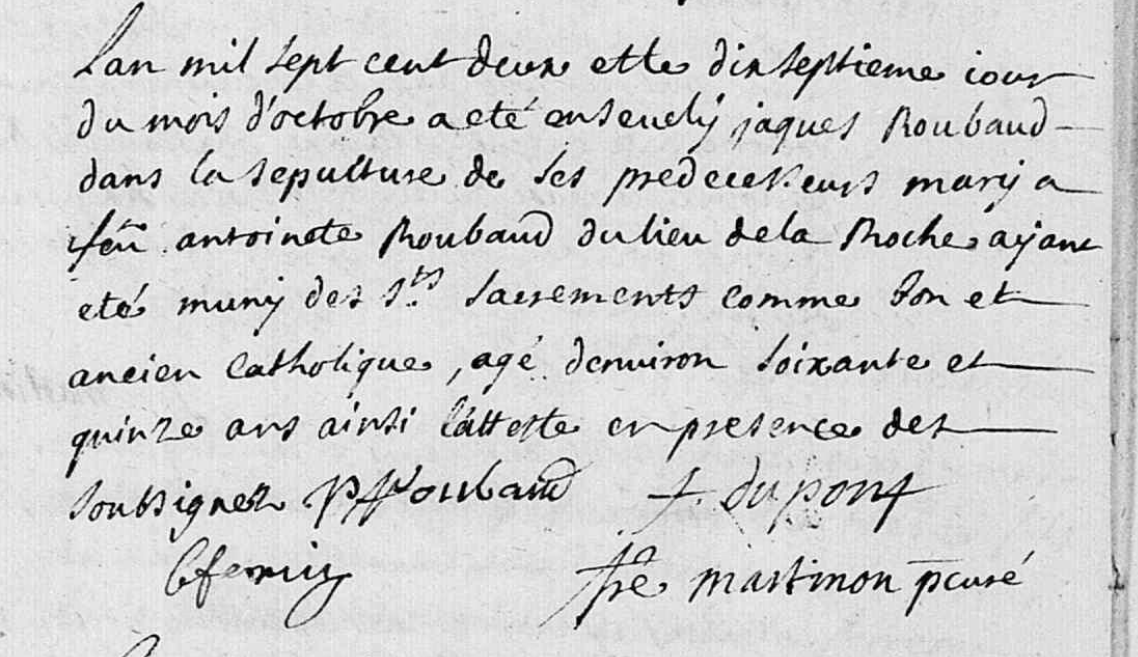 Lan mil sept cent deux et le dix septieme iour
du mois d'octobre a eté ensevely jaques Roubaud
dans la sepulture de ses predecesseurs mary a
feüe antoinete Roubaud du lieu de la Roche ayant
eté muny des sts sacrements comme bon et
ancien catholique, agé denviron soixante et
quinze ans ainsi l'atteste en presence des
soubsignez P Roubaud dupont
fre martinon pcuré